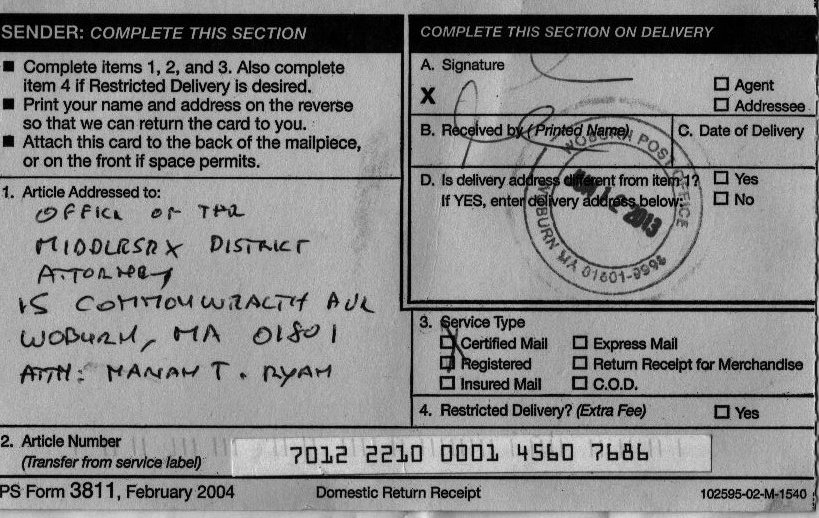 SENDER: COMPLETE THIS SECTION
■ Complete items 1, 2, and 3. Also complete
item 4 if Restricted Delivery is desired.
■ Print your name and address on the reverse
so that we can return the card to you.
■ Attach this card to the back of the mailpiece,
or on the front if space permits.
1. Article Addressed to:
OFFICE OF THE
MIDDLESEX DISTRICT
ATTORNEY
15 COMMONWEALTH AVE
WOBURN, MA 01801
ATTN: MARIAN T. RYAN
2. Article Number
(Transfer from service label)
7012 2210 0001 4560 7686
PS Form 3811, February 2004
Domestic Return Receipt
102595-02-M-1540
COMPLETE THIS SECTION ON DELIVERY
A. Signature
X
☐ Agent
☐ Addressee
B. Received by (Printed Name)
C. Date of Delivery
D. Is delivery address different from item 1? ☐ Yes
If YES, enter delivery address below: ☐ No
WOBURN POST OFFICE
12 2013
WOBURN MA 01801-9998
3. Service Type
☐ Certified Mail ☐ Express Mail
☐ Registered ☐ Return Receipt for Merchandise
☐ Insured Mail ☐ C.O.D.
4. Restricted Delivery? (Extra Fee) ☐ Yes